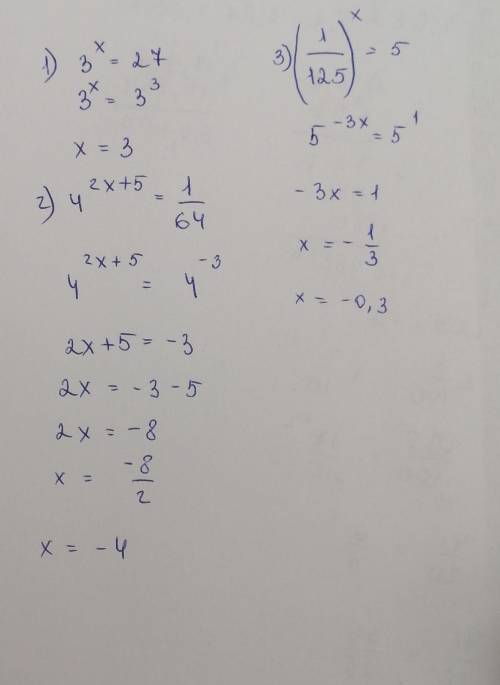 1) 3^x = 27
3^x = 3^3
x = 3
2) 4^(2x+5) = 1/64
4^(2x+5) = 4^(-3)
2x+5 = -3
2x = -3-5
2x = -8
x = -8/2
x = -4
3) (1/125)^x = 5
5^(-3x) = 5^1
-3x = 1
x = -1/3
x = -0,3